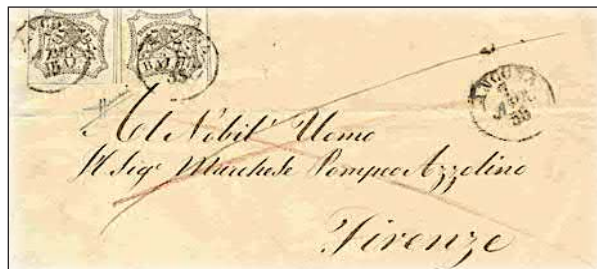 BAJ
BAJ
58
ANCONA
7
APR
58
Al Nobil' Uomo
Il Sigr Marchese Pompeo Azzolino
Firenze